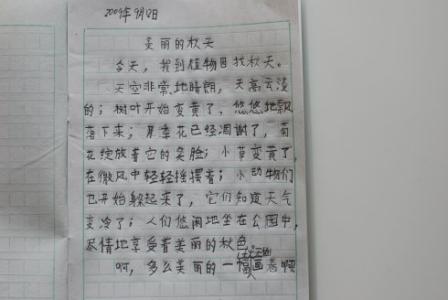 2009年9月12日
美丽的秋天
今天，我到植物园找秋天。
天空非常地晴朗，天高云淡
的；树叶开始变黄了，悠悠地飘
落下来；月季花已经凋谢了，菊
花绽放着它的笑脸；小草变黄了，
在微风中轻轻摇摆着；小动物们
也开始躲起来了，它们知道天气
变冷了；人们悠闲地坐在公园中，
尽情地享受着美丽的秋色。
啊，多么美丽的一幅画卷啊